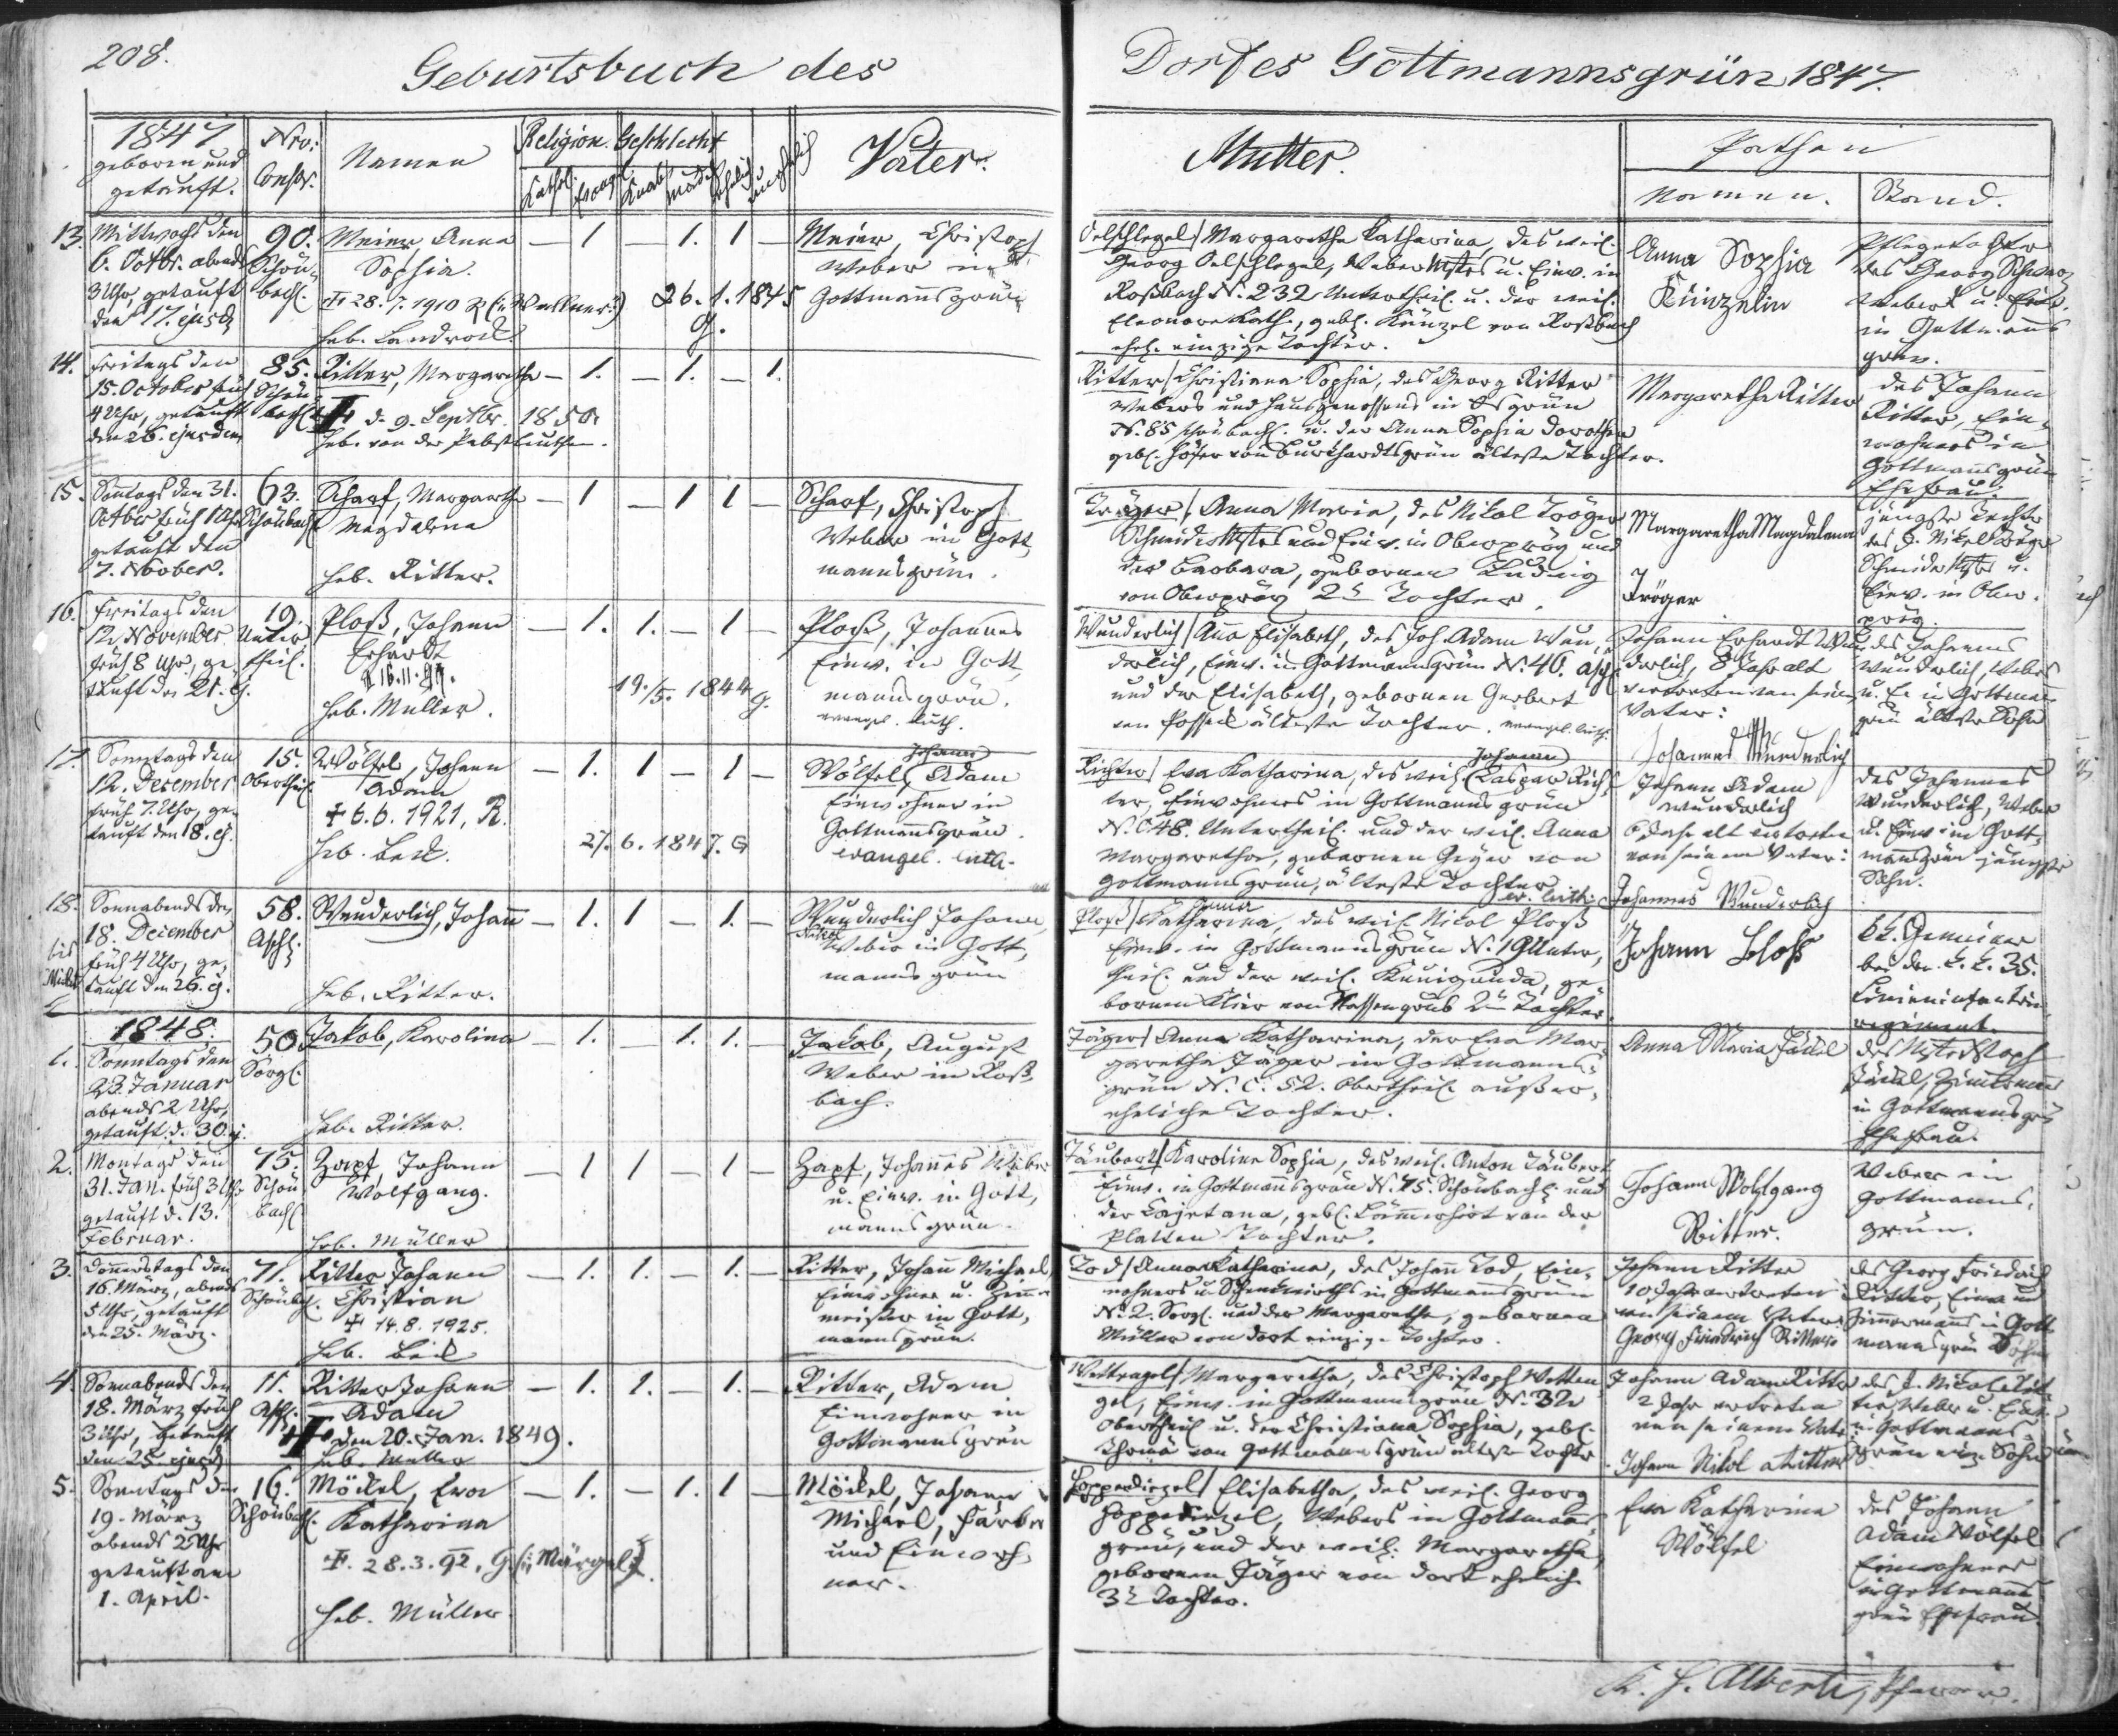 208.
Geburtsbuch des
Dorfes Gottmannsgrün 1847.
1847
geboren und
getauft.
Nro:
Conscr.
Namen
Religion.
Geschlecht
Kathol.
Evang.
Knab
Mädch
ehelich
unehelich
Vater.
Mutter.
Pathen
Namen.
Stand.
13. Mittwochs den
6. Octbr. abends
3 Uhr, getauft
den 17. ejusd.
90.
Schön-
bachl.
Meier, Anna
Sophia.
28.7.1910
Heb. Landrock.
— 1 — 1. 1 —
26.1.1845
G.
Meier, Christoph
Weber in
Gottmannsgrün
Oelschlegel / Margaretha Katharina, des weil.
Georg Oelschlegel, Weber Mstrs u. Einw. in
Roßbach N. 232 Untertheil. u. der weil.
Eleonore Kath., gebl. Künzel von Roßbach
ehel. einzige Tochter.
Anna Sophia
Künzelin
Pflegetochter
des Georg
Webers u. Einw.
in Gottmanns
grün.
14. Freitags den
15. October früh
4 Uhr, getauft
den 26. ejusdem
85.
Schön
bachl.
Ritter, Margaretha
d. 9. Septbr. 1850
Heb. von der
— 1. — 1. — 1.
Ritter / Christiana Sophia, des Georg Ritter
Webers und Hausgenossens in Gsgrün
N. 85 schönbachl. u. der Anna Sophia Dorothea
gebl. Höfer von Burkhardtsgrün älteste Tochter.
Margaretha Ritter
des Johann
Ritter, Ein-
wohners in
Gottmannsgrün
Ehefrau.
15. Sonntags den 31.
Octber früh 1 Uhr
getauft den
7. November.
63.
Schönbachl
Scharf, Margaretha
Magdalena
Heb. Ritter.
— 1 — 1 1 —
Scharf, Christoph
Weber in Gott
mannsgrün.
Tröger / Anna Maria, des Nikol Tröger
Schneider Mstrs und Einw. in Oberprög und
der Barbara, gebornen Ludwig
von Oberprög 2te Tochter.
Margaretha Magdalena
Tröger
jüngste Tochter
des J. Nikol Tröger
Schneider Mstr u.
Einw. in Ober-
prög.
16. Freitags den
12 November
früh 8 Uhr, ge-
tauft den 21. ej.
19.
Unter
theil.
Ploß, Johann
Erhardt
16.11.
Heb. Müller.
— 1. 1. — 1 —
19./5. 1844 G.
Ploß, Johannes
Einw. in Gott
mannsgrün.
evangel. luth.
Wunderlich / Anna Elisabeth, des Joh. Adam Wun
derlich, Einw. in Gottmannsgrün N. 46. aschl.
und der Elisabeth, gebornen Gerbert
von Posseck älteste Tochter. evangel. luth.
Johann Erhardt Wun
derlich, 8 Jahr alt
vertreten von seinem
Vater:
Johannes Wunderlich
des Johannes
Wunderlich, Webers
u. E. in Gottmanns
grün ältester Sohn
17. Sonntags den
12. December
früh 7. Uhr, ge-
tauft den 18. ej.
15.
Obertheil.
Wölfel, Johann
Adam
+ 6.6.1921, R.
Heb. Beck.
— 1. 1 — 1 —
27.6.1847. G
Johann
Wölfel, Adam
Einwohner in
Gottmannsgrün.
evangel. luth.
Johann
Richter / Eva Katharina, des weil. Caspar Rich-
ter, Einwohners in Gottmannsgrün
N. C. 48. Untertheil. und der weil. Anna
Margaretha, gebornen Geyer von
Gottmannsgrün, älteste Tochter
ev. luth.
Johann Adam
Wunderlich
6 Jahr alt vertreten
von seinem Vater:
Johannes Wunderlich
des Johannes
Wunderlich, Weber
u. Einw in Gott-
mannsgrün jüngster
Sohn.
18. Sonnabends den
18. December
früh 4 Uhr, ge-
tauft den 26. ej.
bis
58.
Aschl.
Wunderlich, Johann
Heb. Ritter.
— 1. 1 — 1. —
Wunderlich Johann
Nikol
Weber in Gott
mannsgrün
Ploß / Katharina, des weil. Nicol Ploß
Einw. in Gottmannsgrün N. 19 Unter-
theil. und der weil. Kunigunda, ge-
bornen Klier von Nassengrub 2te Tochter.
Johann Ploß
k.k. Gemeiner
bei dem k. k. 35.
Linieninfanterie
regiment.
1848.
1. Sonntags den
23. Januar
abends 2 Uhr,
getauft d. 30. ej.
50
Sorgl.
Jakob, Karolina
Heb. Ritter.
— 1. — 1. 1. —
Jakob, August
Weber in Roß-
bach.
Jäger / Anna Katharina, der Eva Mar-
garetha Jäger in Gottmanns-
grün N. C. 52. Obertheil. außer-
eheliche Tochter.
Anna Maria Jäckel
des Christoph
Jäckel, Zimmermann
in Gottmannsgrün
Ehefrau.
2. Montags den
31. Jan. früh 3 Uhr
getauft d. 13.
Februar.
75.
Schön
bachl
Zapf, Johann
Wolfgang.
Heb. Müller
— 1 1 — 1 —
Zapf, Johannes Weber
u. Einw. in Gott,
mannsgrün.
Täubert / Karoline Sophia, des weil. Anton Täubert
Einw. in Gottmannsgrün N. 75. Schönbachl. und
der Cajetana, gebl. Lämmerhirt von der
Platten Tochter.
Johann Wolfgang
Ritter.
Weber in
Gottmanns,
grün.
3. Donnerstags den
16. März, abends
5 Uhr, getauft
den 25. März.
71.
Schönbchl.
Ritter Johann
Christian
+ 14.8.1925.
Heb. Beck
— 1. 1. — 1. —
Ritter, Johann Michael,
Einwohner u. Zimmer
meister in Gott,
mannsgrün.
Tod / Anna Katharina, des Johann Tod, Ein-
wohners u. Schenkwirths in Gottmannsgrün
N. 2. Sorgl. und der Margaretha, gebornen
Müller von dort einzige Tochter.
Johann Ritter
10 Jahr vertreten
von seinem Vater:
Georg Friedrich Ritter
des Georg Friedrich
Ritter, Einw und
Zimmermanns in Gott
mannsgrün Sohn
4. Sonnabends den
18. März früh
3 Uhr, getauft
den 25 ejusd.
11.
Aschl.
Ritter Johann
Adam
den 20. Jan. 1849.
Heb. Müller
— 1. 1. — 1. —
Ritter, Adam
Einwohner in
Gottmannsgrün
Wettengel / Margaretha, des Christoph Wetten
gel, Einw. in Gottmannsgrün N. 32
Obertheil u. der Christiana Sophia, gebl.
von Gottmannsgrün älteste Tochter
Johann Adam Ritter
2 Jahr vertreten
von seinem Vater
Johann Nikol Ritter
des J. Nicol Rit-
ter Weber u. Einw.
in Gottmanns-
grün Sohn
5. Sonntags den
19. März
abends 2 Uhr
getauft am
1. April.
16.
Schönbachl.
Möckel, Eva
Katharina
28.3.92, G.
Heb. Müller.
— 1. — 1. 1 —
Möckel, Johann
Michael, Färber
und Einwoh-
ner.
Hopperdiezel / Elisabetha, des weil. Georg
Hopperdiezel, Webers in Gottmanns
grün, und der weil. Margaretha,
gebornen Jäger von dort eheliche
3te Tochter.
Eva Katharina
Wölfel
des Johann
Adam Wölfel
Einwohners
in Gottmanns-
grün Ehefrau
Alberti, Pfarrer.